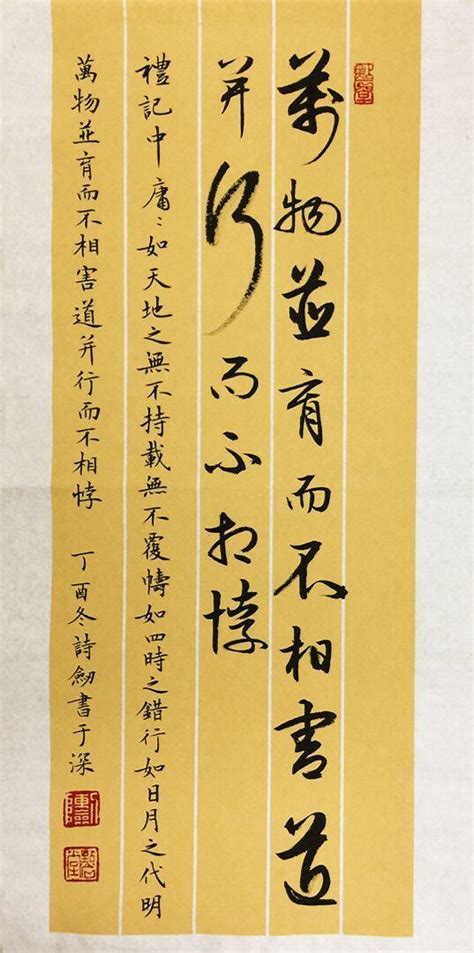 萬物並育而不相害道
并行而不相悖
禮記中庸〻如天地之無不持載無不覆幬如四時之錯行如日月之代明
萬物並育而不相害道并行而不相悖 丁酉冬詩劍書于深